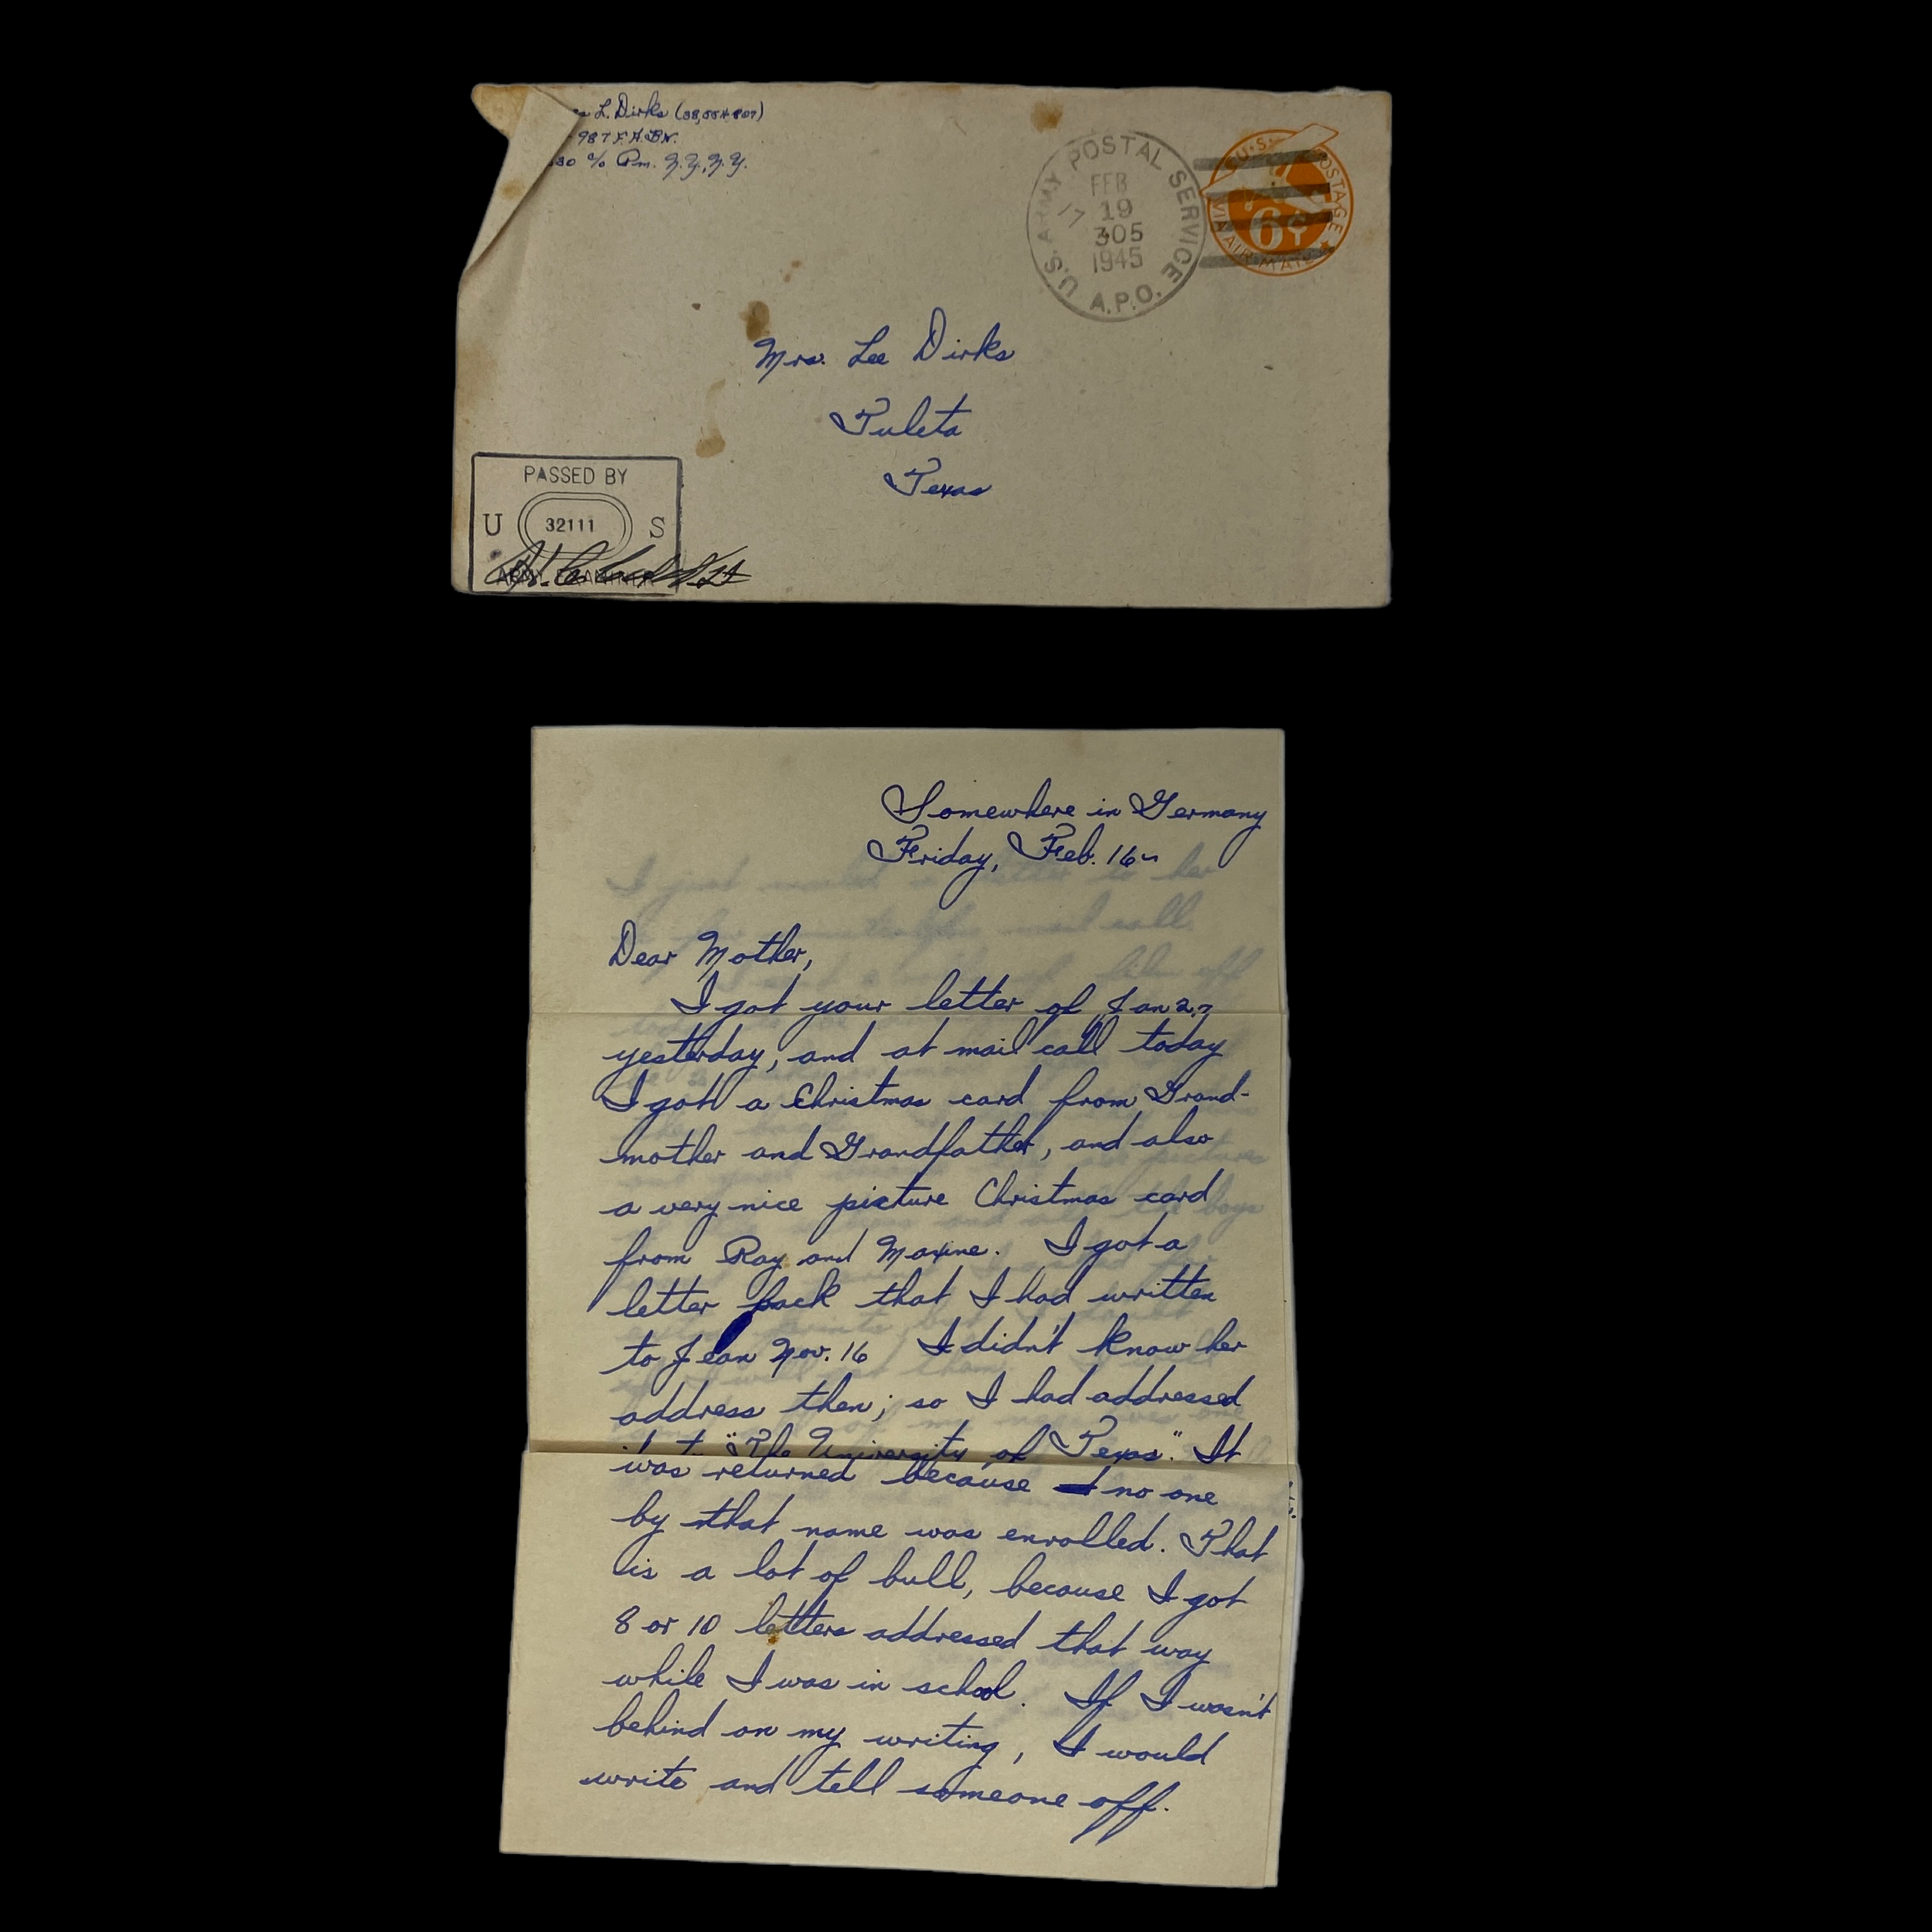 L. Dirks (38,554,807)
987 F.A. BN.
% Pm. N.Y., N.Y.
U.S. ARMY POSTAL SERVICE
FEB
17 19
305
1945
A.P.O.
U.S. POSTAGE
6¢
VIA AIR MAIL
Mrs. Lee Dirks
Tuleta
Texas
PASSED BY
U 32111 S
ARMY EXAMINER
Somewhere in Germany
Friday, Feb. 16
Dear Mother,
I got your letter of Jan 27
yesterday, and at mail call today
I got a Christmas card from Grand-
mother and Grandfather, and also
a very nice picture Christmas card
from Ray and Maxine. I got a
letter back that I had written
to Jean Nov. 16 I didn't know her
address then; so I had addressed
it to "The University of Texas". It
was returned because no one
by that name was enrolled. That
is a lot of bull, because I got
8 or 10 letters addressed that way
while I was in school. If I wasn't
behind on my writing, I would
write and tell someone off.